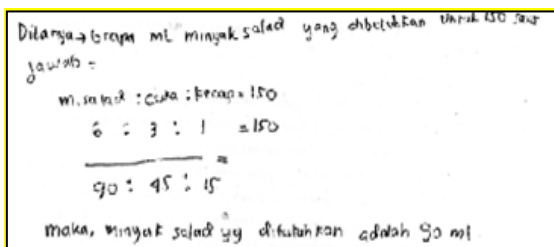 Ditanya → berapa ml minyak salad yang dibutuhkan untuk 150 saus
jawab =
m. salad : cuka : kecap = 150
6 : 3 : 1 = 150
=
90 : 45 : 15
maka, minyak salad yg dibutuhkan adalah 90 ml.